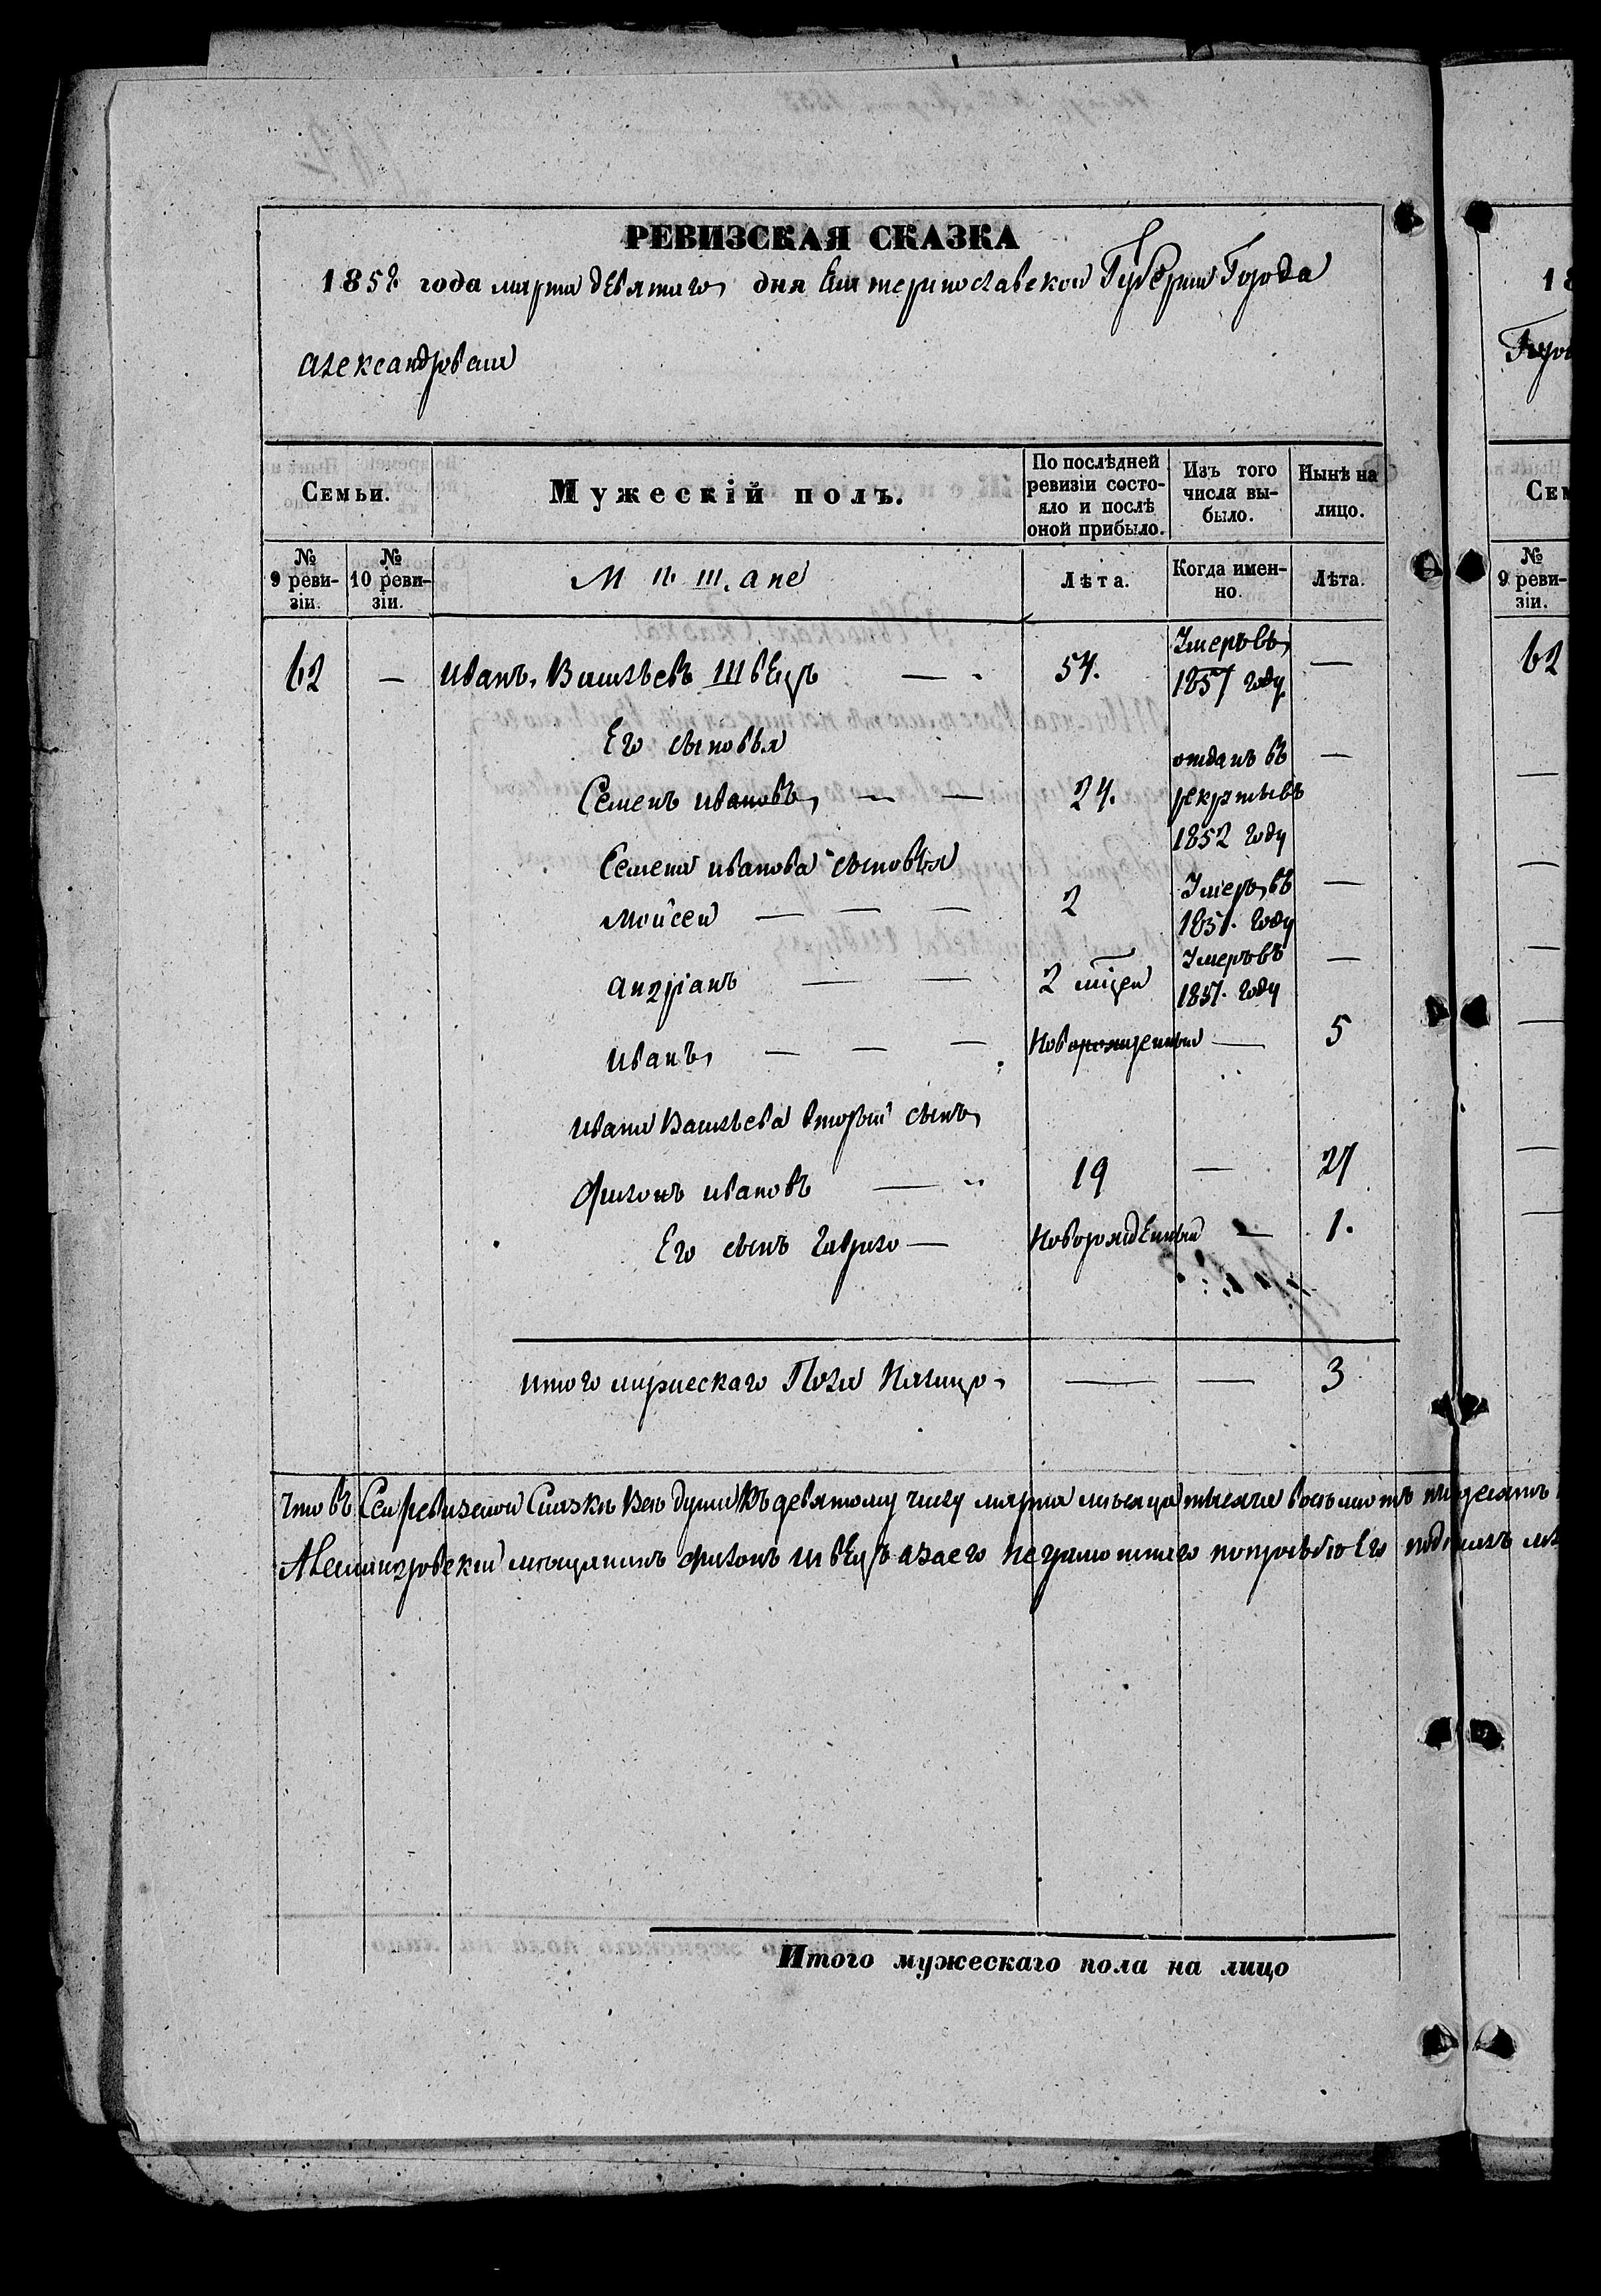 РЕВИЗСКАЯ СКАЗКА
1858 года марта девятаго дня Екатеринославской Губернии Города
Александровска
Семьи.
Мужескій полъ.
По послѣдней ревизіи состояло и послѣ оной прибыло.
Изъ того числа выбыло.
Нынѣ на лицо.
№ 9 ревизіи.
№ 10 ревизіи.
Мѣщане
Лѣта.
Когда именно.
Лѣта.
62 — Иванъ Васильевъ Швецъ — 54. Умеръ въ 1857 году —
Его сыновья
Семенъ Ивановъ — — 24. отданъ въ рекруты въ 1852 году —
Семена Иванова сыновья
Мойсей — — — 2 Умеръ въ 1851. году —
Андріанъ — — 2 мѣцей Умеръ въ 1851. году —
Иванъ — — — Новорожденный — 5
Ивана Васильева второй сынъ
Филонъ Ивановъ — 19 — 27
Его сынъ Гаврило — Новорожденный — 1.
Итого мужескаго Пола Налицо — — 3
Что въ Сей ревизской Сказкѣ Всѣ души Къ девятому числу марта мѣсяца тысяча восемьсотъ пятдесятъ
Александровскій мещанинъ Филонъ Швецъ а за его неграмотнаго по просьбѣ Его
Итого мужескаго пола на лицо
18
Горо
Сем
№ 9 ревизіи.
62